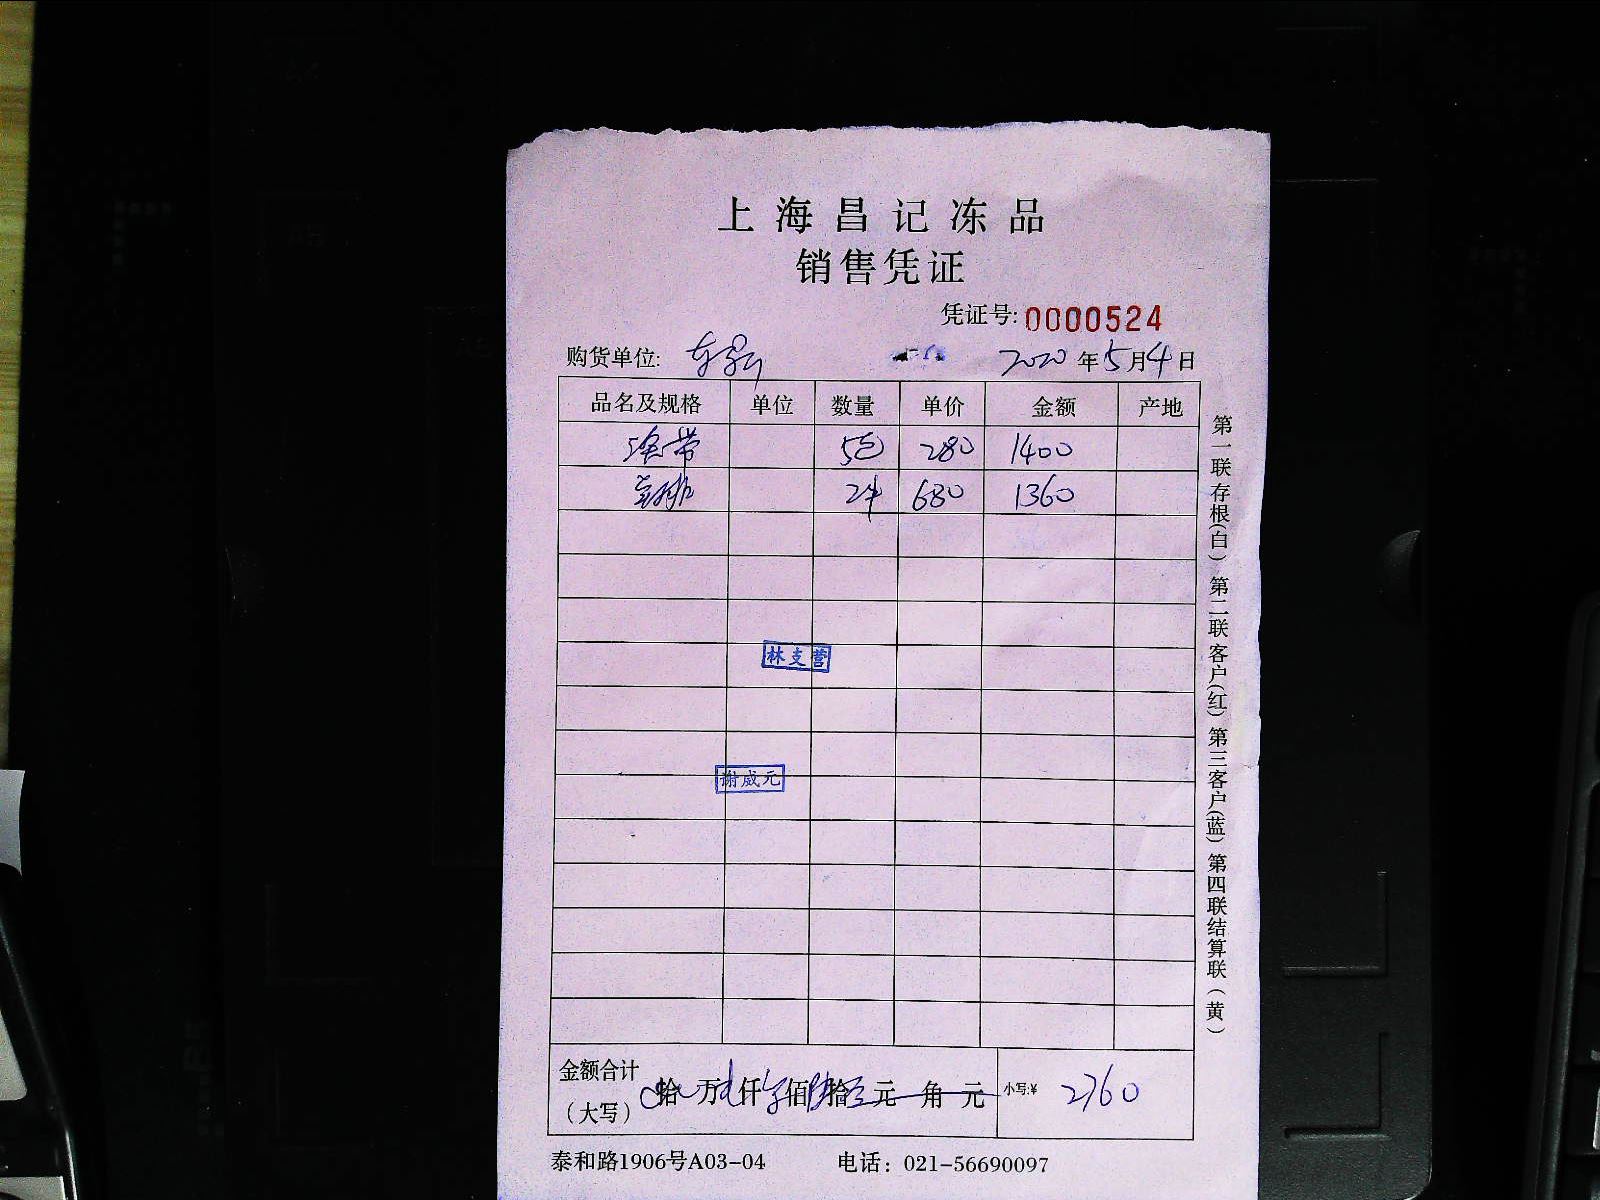 上海昌记冻品
销售凭证
凭证号: 0000524
购货单位: 2020年5月4日
品名及规格 单位 数量 单价 金额 产地
5包 280 1400
2件 680 1360
林支营
谢成元
金额合计（大写） 拾 万 仟 佰 拾 元 角 元 小写:¥ 2760
泰和路1906号A03-04 电话：021-56690097
第一联存根(白) 第二联客户(红) 第三客户(蓝) 第四联结算联(黄)